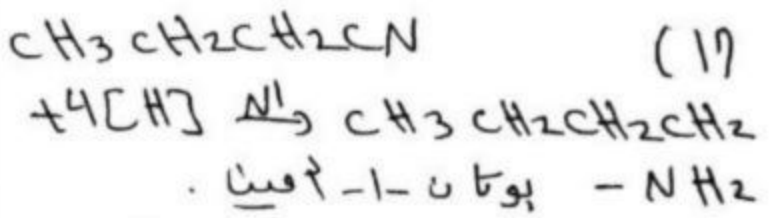 CH3CH2CH2CN (11
+4[H] Ni→ CH3CH2CH2CH2
- NH2 بوتان-1-أمينا .